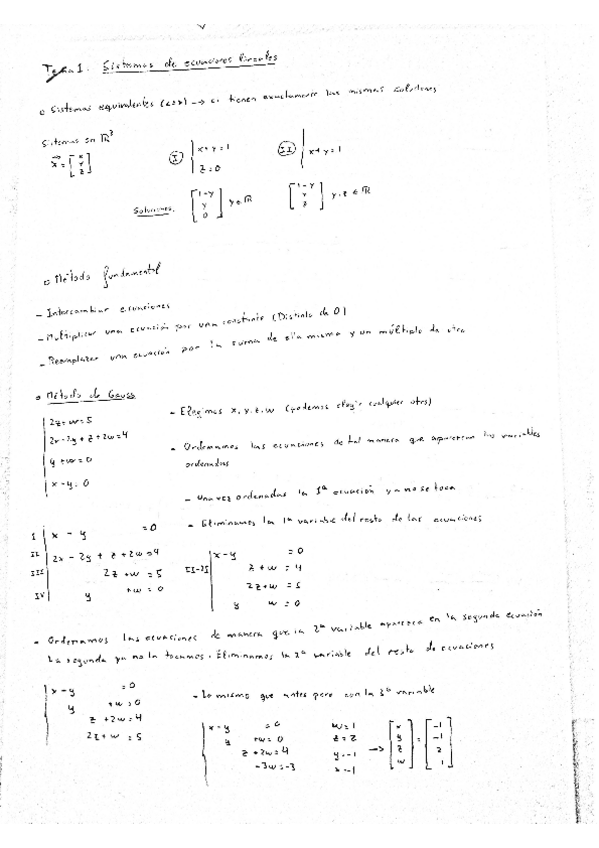 Tema 1. Sistemas de ecuaciones lineales
o Sistemas equivalentes (<=>) -> si tienen exactamente las mismas soluciones
Sistemas en ℝ³
x = [x y z]
I) x+y=1
z=0
II) x+y=1
Soluciones. [1-y y 0] y∈ℝ
[1-y y z] y,z ∈ ℝ
o Método fundamental
- Intercambiar ecuaciones
- Multiplicar una ecuación por una constante (Distinta de 0)
- Reemplazar una ecuación por la suma de ella misma y un múltiplo de otra
o Método de Gauss
2z+w=5
2x-2y+z+2w=4
y+w=0
x-y=0
- Elegimos x,y,z,w (podemos elegir cualquier otra)
- Ordenamos las ecuaciones de tal manera que aparezcan las variables
ordenadas
- Una vez ordenadas la 1ª ecuación ya no se toca
- Eliminamos la 1ª variable del resto de las ecuaciones
I x - y =0
II 2x - 2y + z +2w=4
III 2z +w=5
IV y +w=0
x-y =0
II-2I z +w =4
2z+w =5
y w =0
- Ordenamos las ecuaciones de manera que la 2ª variable aparezca en la segunda ecuación
La segunda ya no la tocamos. Eliminamos la 2ª variable del resto de ecuaciones
x-y =0
y +w=0
z +2w=4
2z+w =5
- Lo mismo que antes pero con la 3ª variable
x-y =0
y +w=0
z +2w=4
-3w=-3
w=1
z=2
y=-1
x=-1
-> [x y z w] = [-1 -1 2 1]